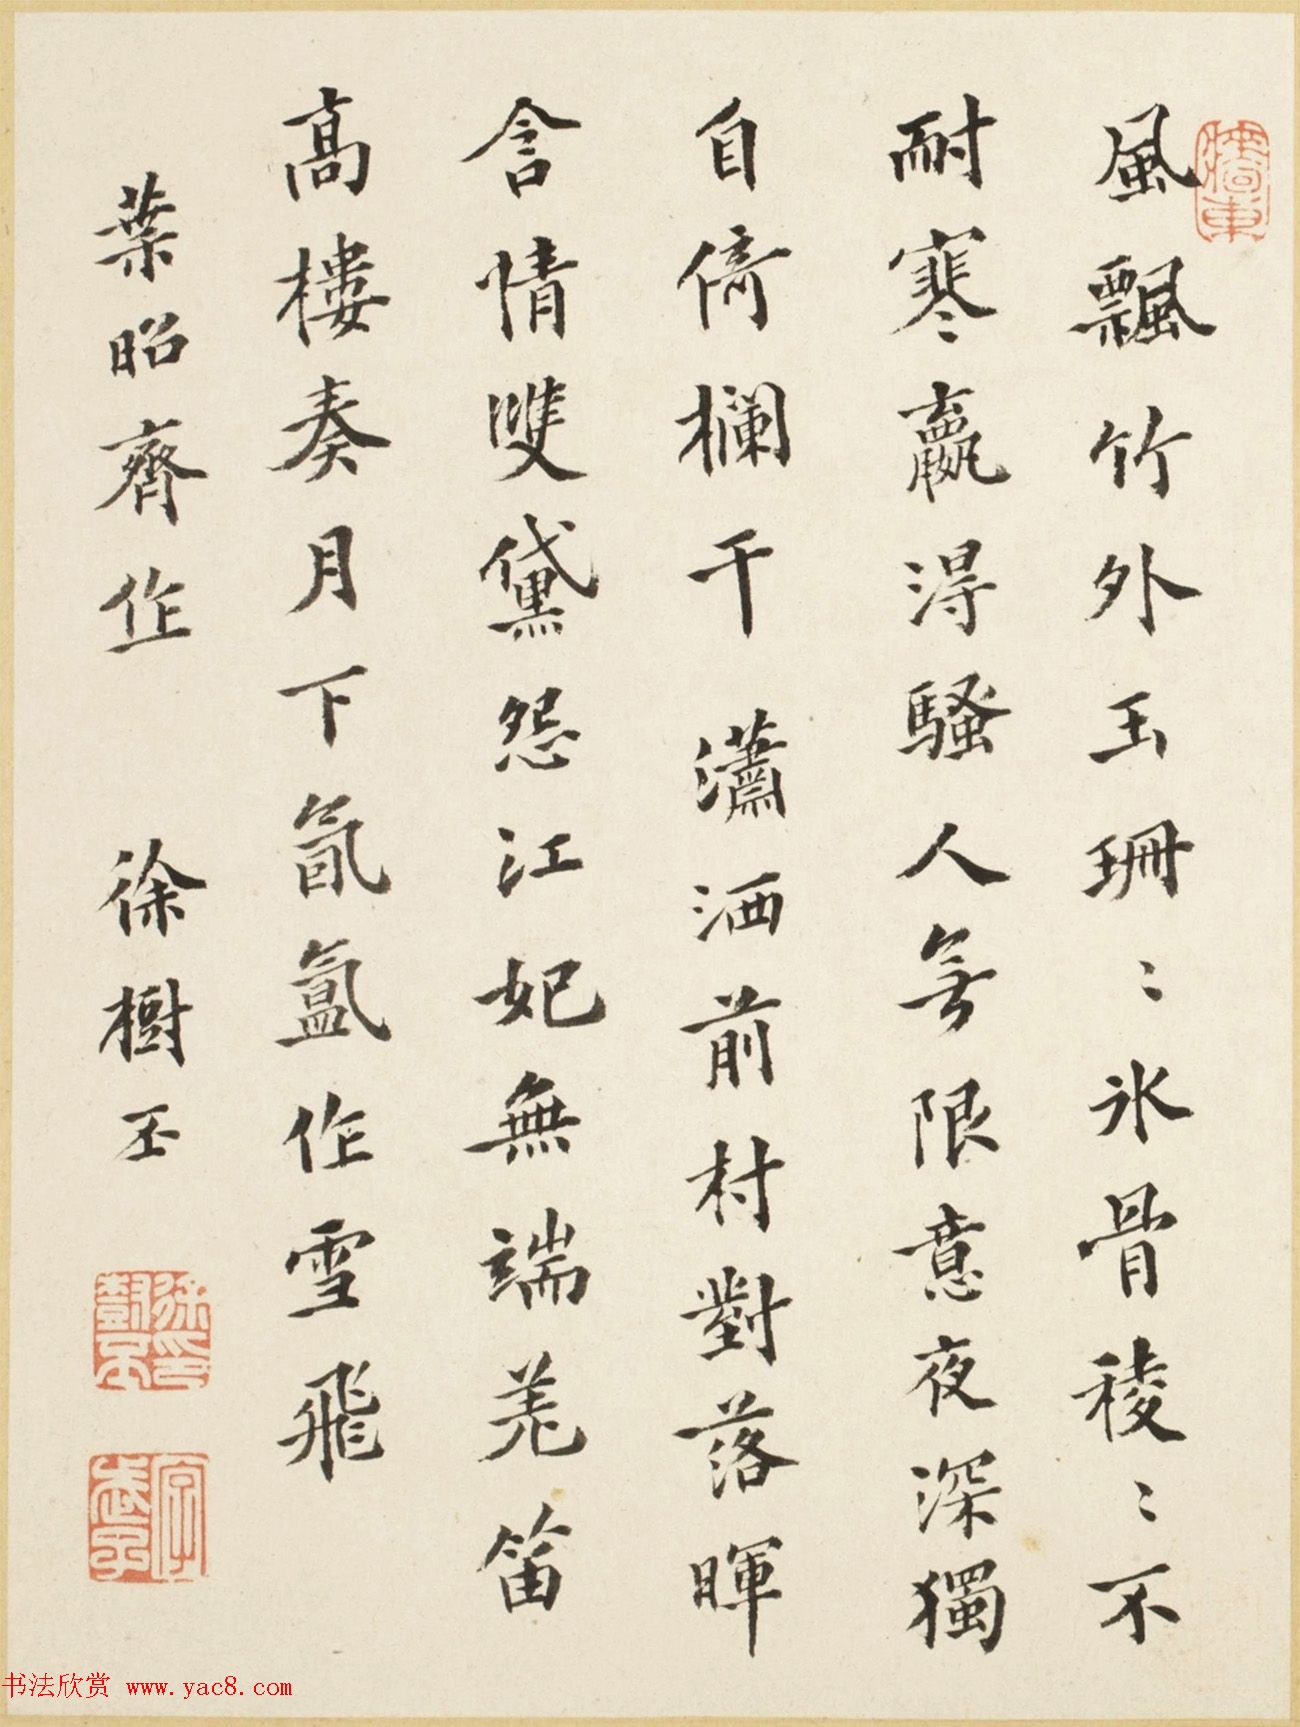 牆東
風飄竹外玉珊〻氷骨稜〻不
耐寒贏得騷人無限意夜深獨
自倚欄干瀟洒前村對落暉
含情雙黛怨江妃無端羌笛
高樓奏月下氤氳作雪飛
葉昭齊作 徐樹丕
徐印樹丕
字武子
书法欣赏 www.yac8.com